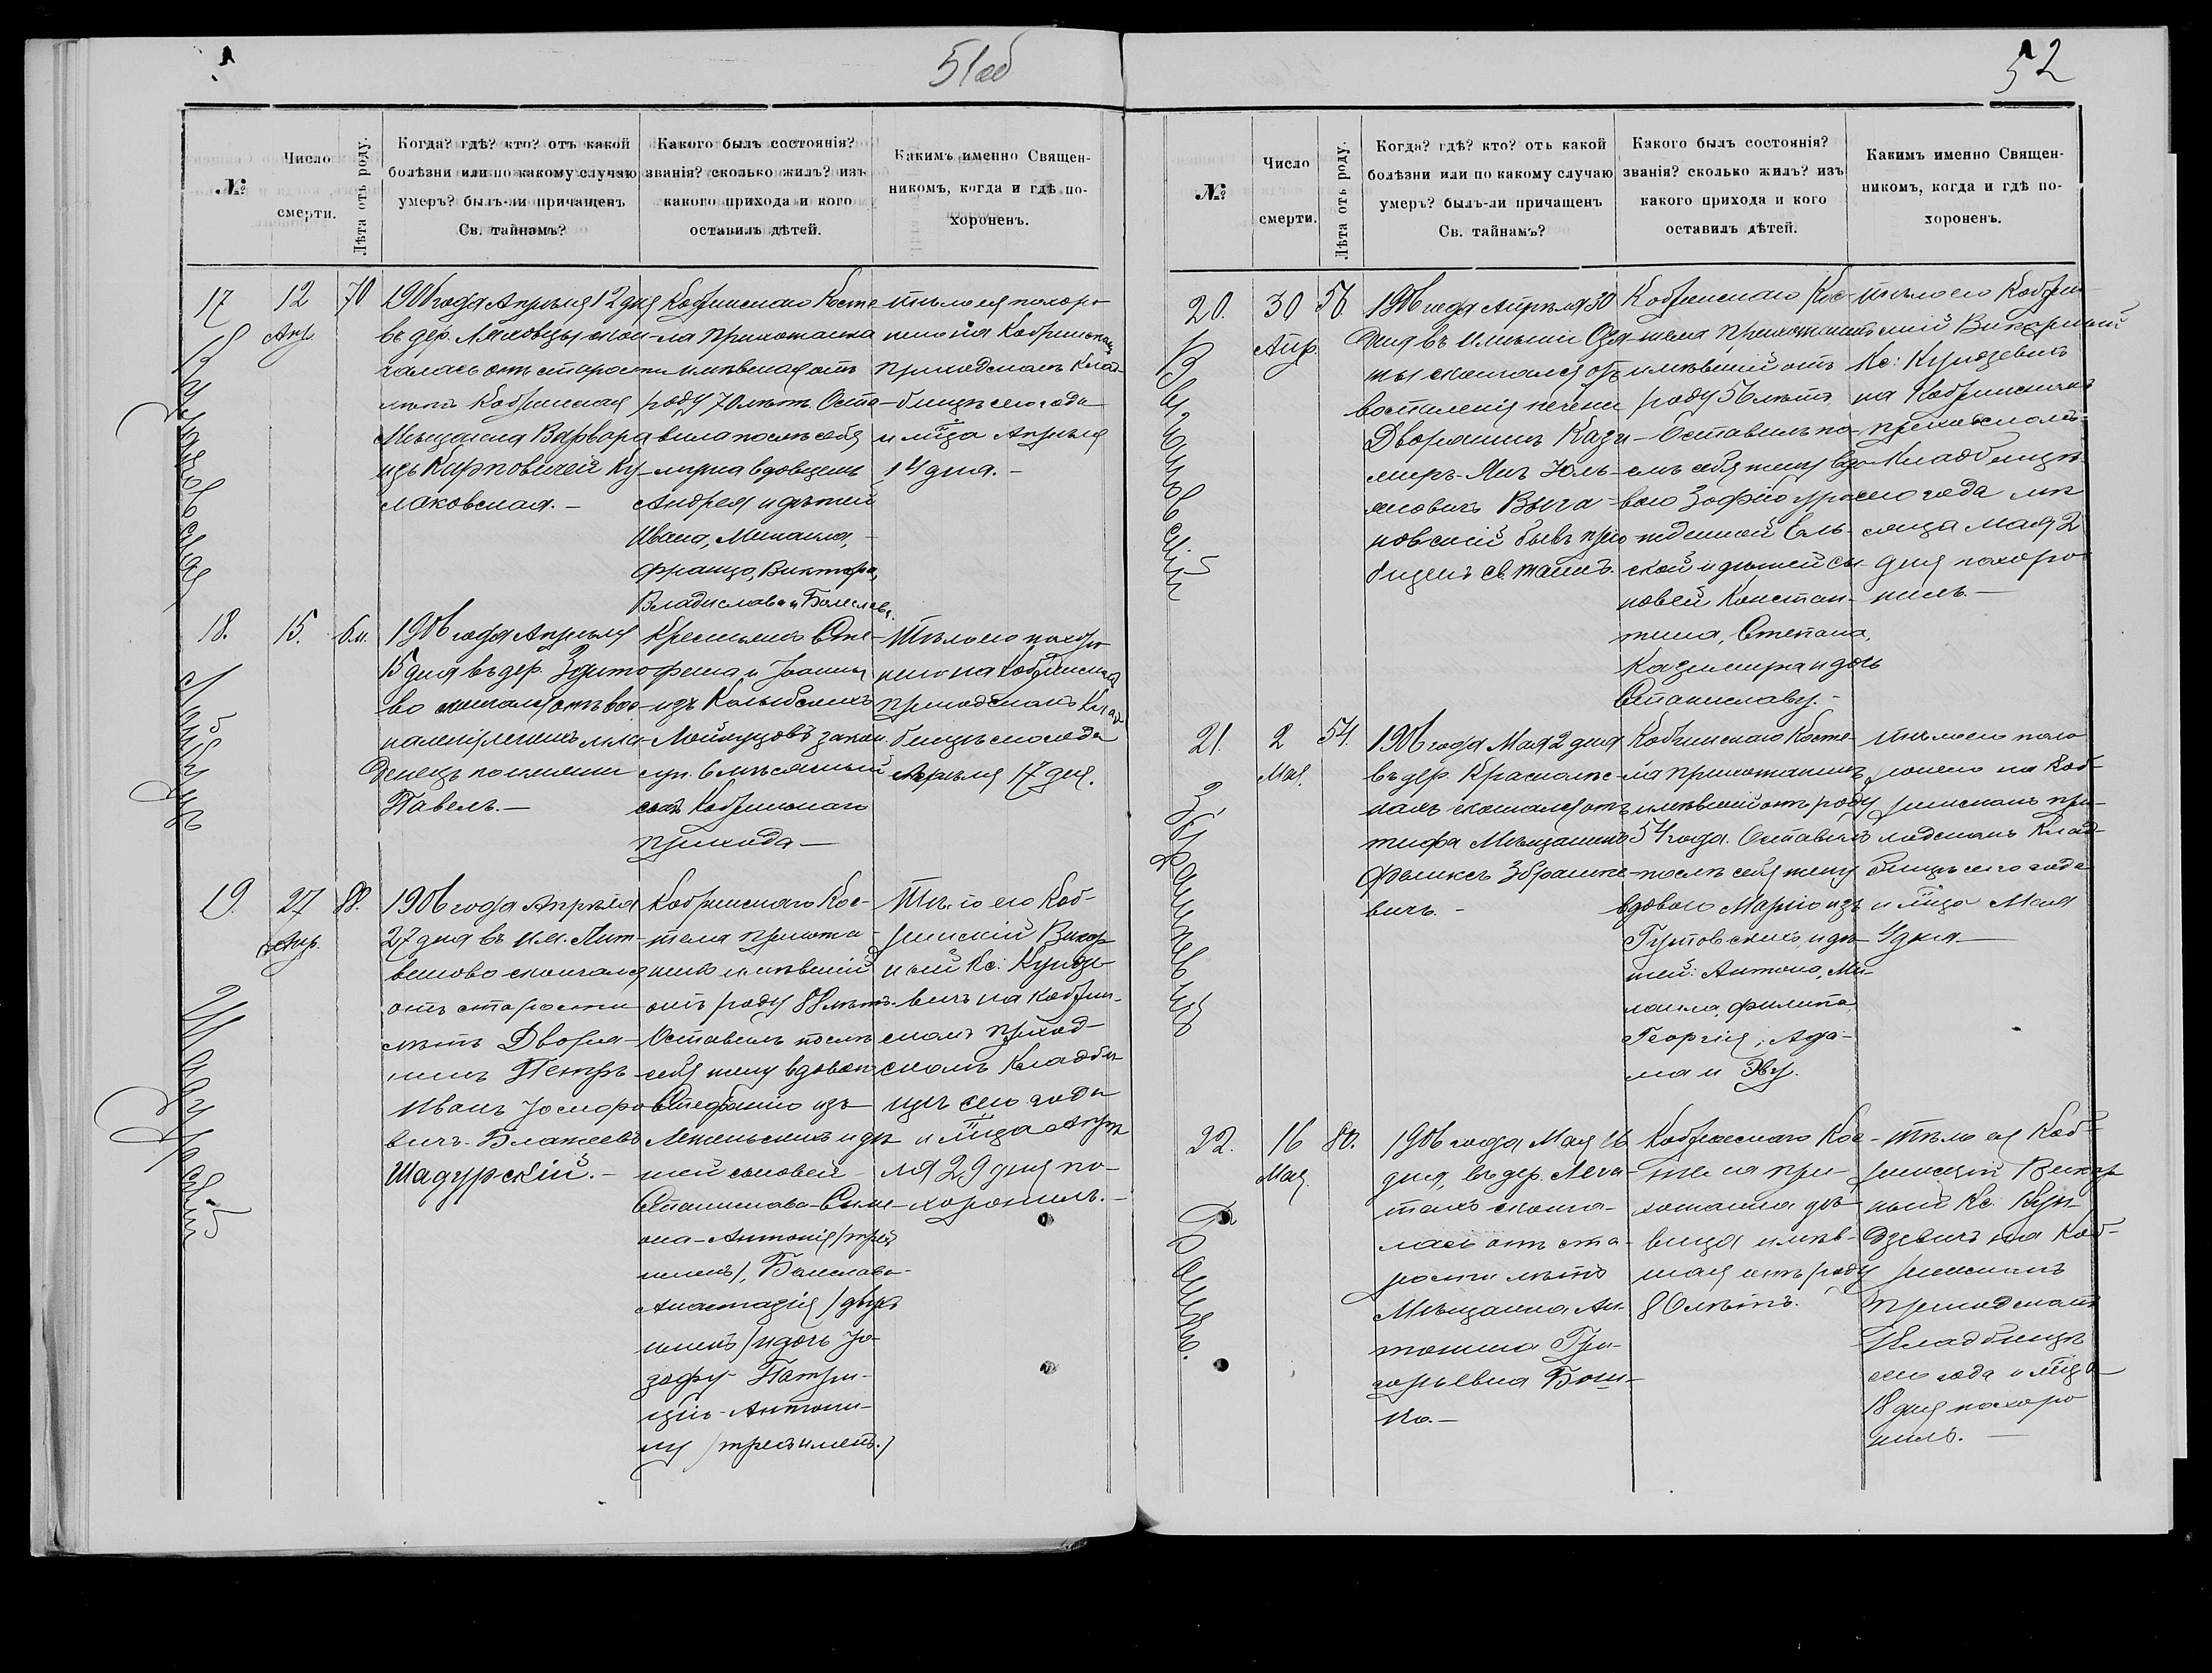 51об
№
Число смерти.
Лѣта отъ роду.
Когда? гдѣ? кто? отъ какой
болѣзни или по какому случаю
умеръ? былъ-ли причащенъ
Св. тайнамъ?
Какого былъ состоянія?
званія? сколько жилъ? изъ
какого прихода и кого
оставилъ дѣтей.
Какимъ именно Священ-
никомъ, когда и гдѣ по-
хороненъ.
17
12
Апр.
70
1906 года Апрѣля 12 дня
въ дер. Ляховцы скон-
чалась отъ старости
лѣтъ Кобринская
Мѣщанка Варвара
изъ Карповичей Ку-
лаковская. -
Кобринскаго Косте-
ла Прихожанка
имѣвшая отъ
роду 70 лѣтъ. Оста-
вила послѣ себя
мужа вдовцемъ
Андрея и дѣтей
Ивана, Михаила, -
Франца, Виктора,
Владислава и Болеслава.
тѣло ея похоро-
нено на Кобринскомъ
приходскомъ Клад-
бищѣ сего года
и м-ца Апрѣля
14 дня. -
Кулаковская
18.
15.
6 м.
1906 года Апрѣля
15 дня въ дер. Здито-
во скончался отъ вос-
паленія легкихъ мла-
денецъ по имени
Павелъ. -
Крестьянъ Сте-
фана и Іоанны
изъ Колыбскихъ
закон.
суп. 6 мѣсячный
сынъ Кобринскаго
прихода -
Тѣло его похоро-
нено на Кобринскомъ
приходскомъ Клад-
бищѣ сего года
Апрѣля 17 дня.
19.
27
Апр.
88.
1906 года Апрѣля
27 дня въ им. Лит-
виново скончался
отъ старости
лѣтъ Дворя-
нинъ Петръ -
Иванъ Іосифо-
вичъ - Блажеевъ
Шадурскій. -
Кобринскаго Кос-
тела прихожа-
нинъ имѣвшій
отъ роду 88 лѣтъ.
Оставилъ послѣ
себя жену вдовою
Стефанію изъ
и дѣ-
тей сыновей -
Станислава-Симе-
она-Антонія /трёхъ
именъ/, Болеслава-
Анастазія /двухъ
именъ/ и дочь Іо-
зефу - Патри-
цію - Антони-
ну /трехъ именъ./
Тѣло его Коб-
ринскій Викар-
ный Кс: Кундзе-
вичъ на Кобрин-
скомъ приход-
скомъ Кладби-
щѣ сего года
и м-ца Апрѣ-
ля 29 дня по-
хоронилъ. -
Шадурскій
52
№
Число смерти.
Лѣта отъ роду.
Когда? гдѣ? кто? отъ какой
болѣзни или по какому случаю
умеръ? былъ-ли причащенъ
Св. тайнамъ?
Какого былъ состоянія?
званія? сколько жилъ? изъ
какого прихода и кого
оставилъ дѣтей.
Какимъ именно Священ-
никомъ, когда и гдѣ по-
хороненъ.
20.
30
Апр.
56.
1906 года Апрѣля 30
дня въ имѣніи
скончался отъ
воспаленія печени
Дворянинъ Кази-
миръ-Янъ Юль-
яновичъ Выга-
новскій бывъ при-
чащенъ св. таинъ.
Кобринскаго Кос-
тела Прихожанинъ
имѣвшій отъ
роду 56 лѣтъ.
Оставилъ по-
слѣ себя жену вдо-
вою Зофію урож-
денной Ель-
ской и дѣтей сы-
новей Констан-
тина, Степана,
Казимира и дочь
Станиславу. -
тѣло его Кобрин-
скій Викарный
Кс: Кундзевичъ
на Кобринскомъ
приходскомъ
Кладбищѣ
сего года мѣ-
сяца Мая 2
дня похоро-
нилъ. -
Выгановскій
21.
2
Мая.
54.
1906 года Мая 2 дня
въ дер.
скончался отъ
тифа Мѣщанинъ
Феликсъ Збраже-
вичъ. -
Кобринскаго Косте-
ла прихожанинъ
имѣвшій отъ роду
54 года. Оставилъ
послѣ себя жену
вдовою Марію изъ
Гутовскихъ и дѣ-
тей: Антона, Ми-
хаила, Филипа,
Георгія, Ада-
ма и Эву.
тѣло его похо-
ронено на Коб-
ринскомъ при-
ходскомъ Клад-
бищѣ сего года
и м-ца Мая
4 дня -
22.
16
Мая.
80.
1906 года Мая 16
дня, въ дер. Лега-
тахъ сконча-
лась отъ ста-
рости лѣтъ
Мѣщанка Ан-
тонина Гри-
горьевна Бош-
ко. -
Кобринскаго Кос-
тела при-
хожанка дѣ-
вица имѣв-
шая отъ роду
80 лѣтъ.
Тѣло ея Коб-
ринскій Викар-
ный Кс. Кун-
дзевичъ на Коб-
ринскомъ
приходскомъ
Кладбищѣ
сего года и м-ца
18 дня похоро-
нилъ. -